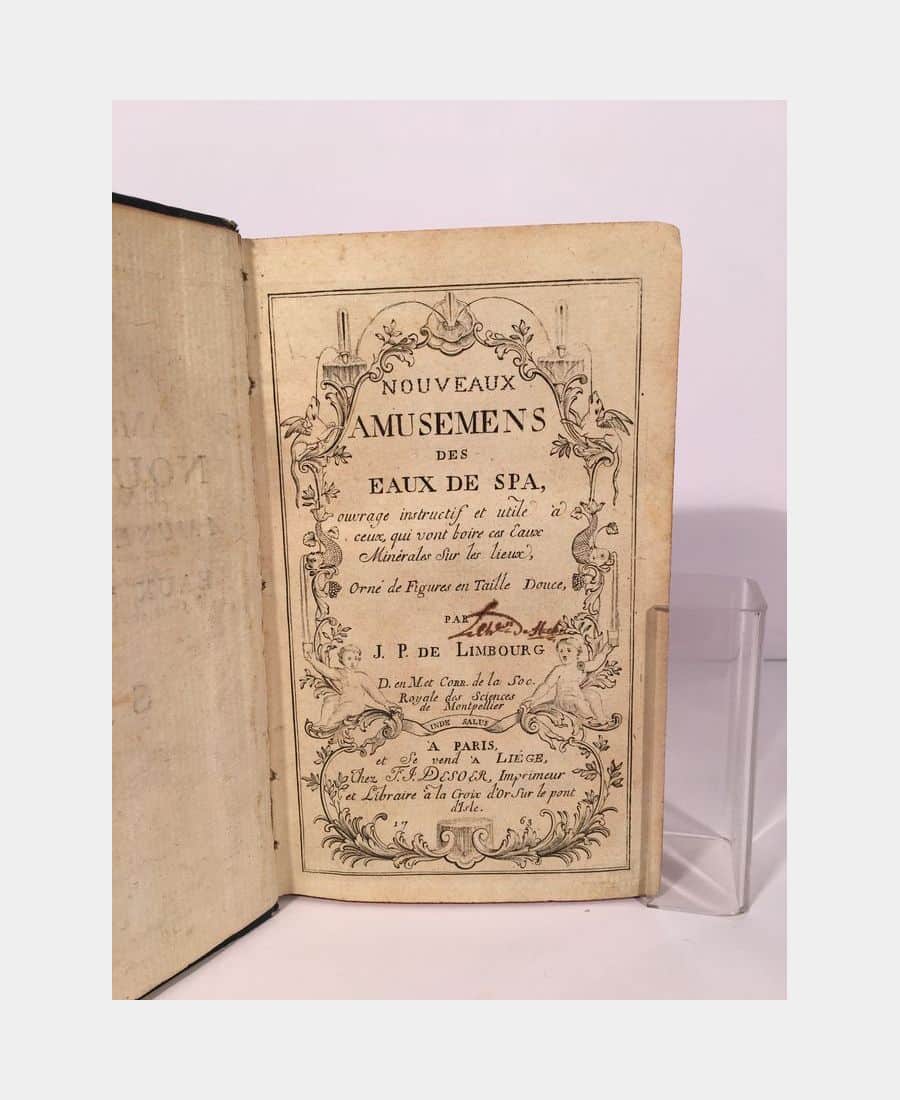 NOUVEAUX
AMUSEMENS
DES
EAUX DE SPA,
ouvrage instructif et utile à
ceux, qui vont boire ces Eaux
Minérales Sur les lieux,
Orné de Figures en Taille Douce,
PAR
J. P. DE LIMBOURG
D. en M. et CORR. de la Soc.
Royale des Sciences
de Montpellier
INDE SALUS
A PARIS,
et Se vend A LIÉGE,
Chez F. J. DESOER, Imprimeur
et Libraire à la Croix d'Or Sur le pont
d'Isle.
17 63